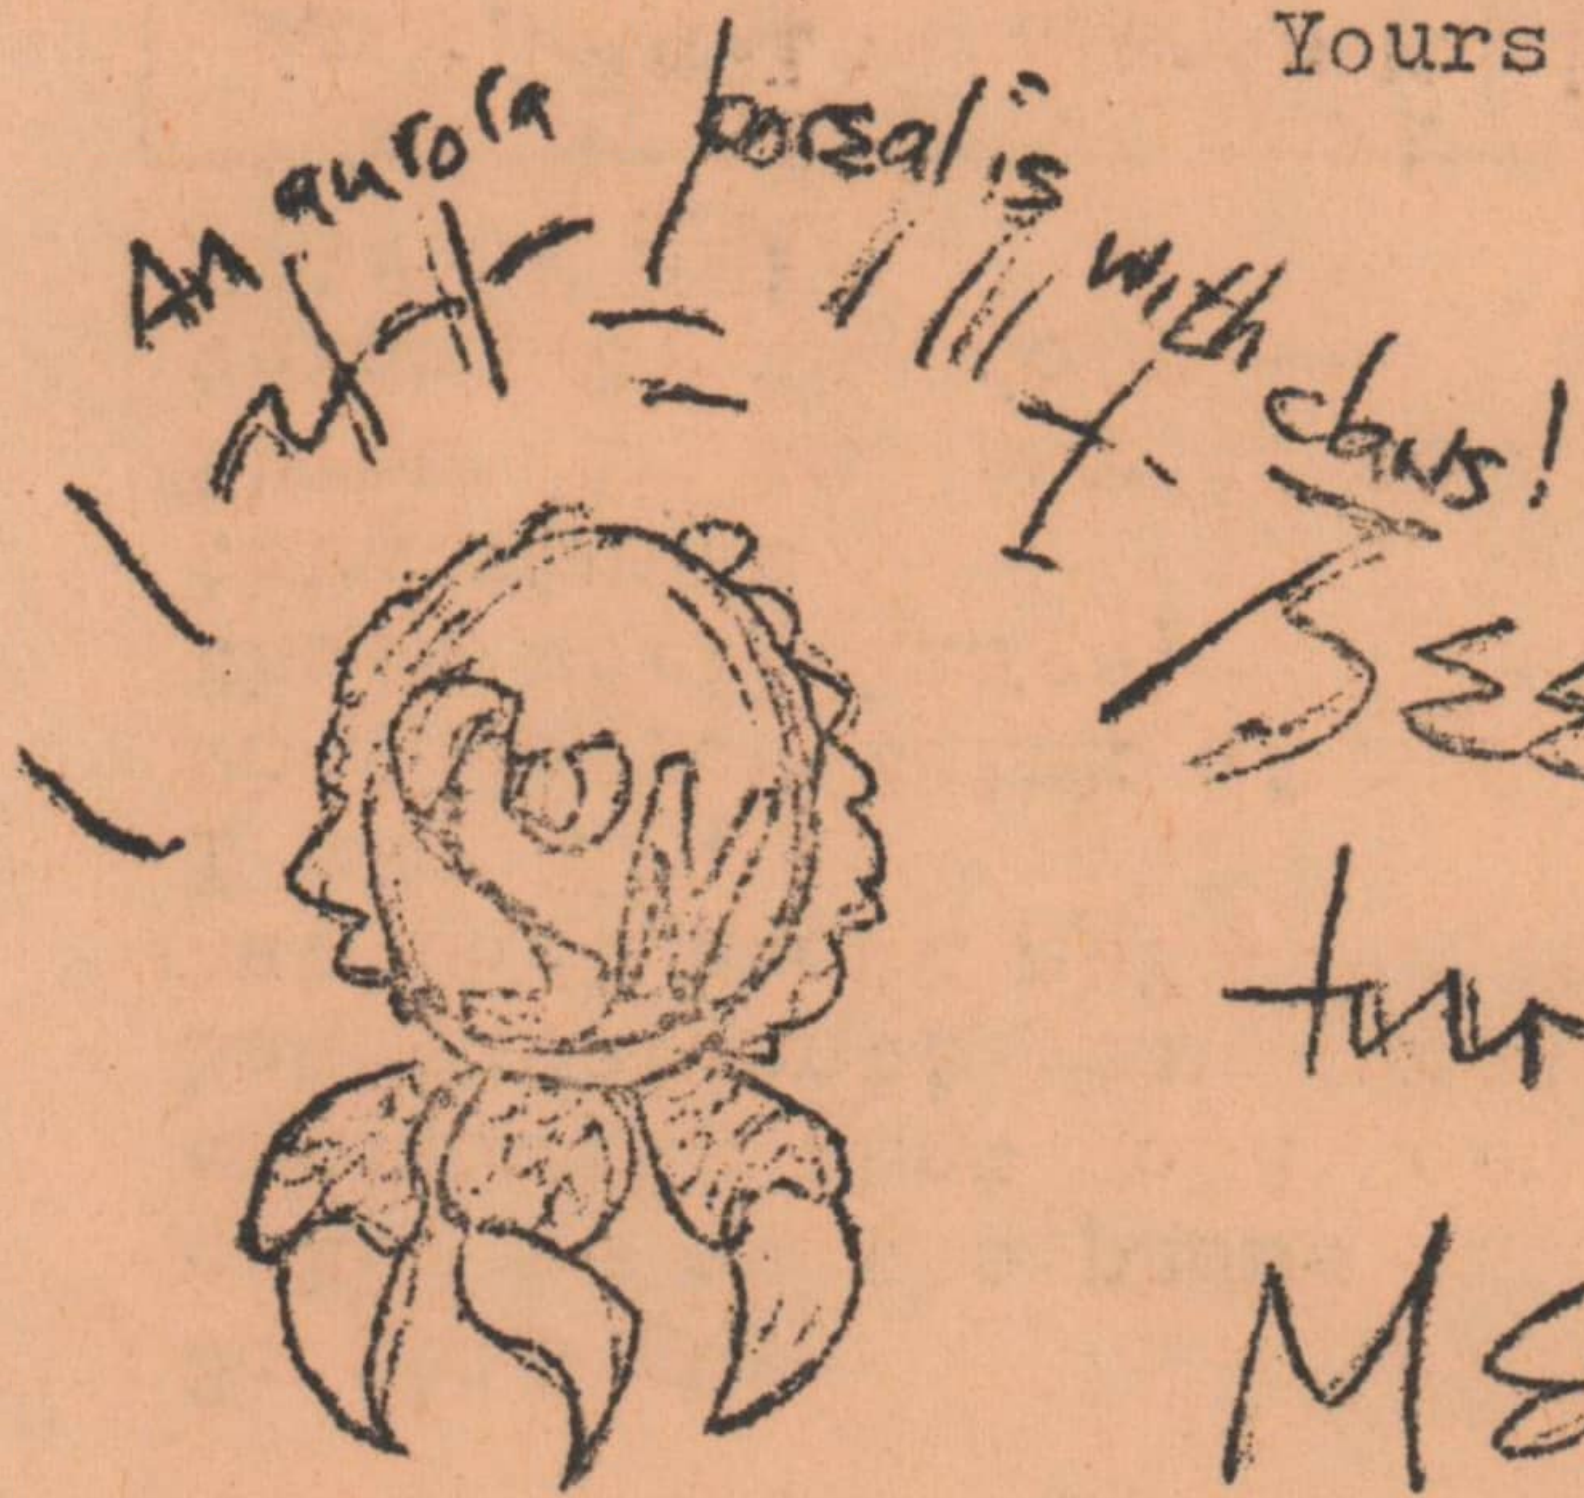 Yours
An aurora borealis with claws!